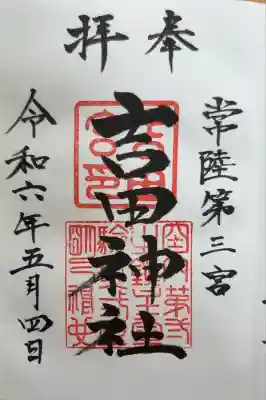 奉拝
常陸第三宮
吉田神社
令和六年五月四日